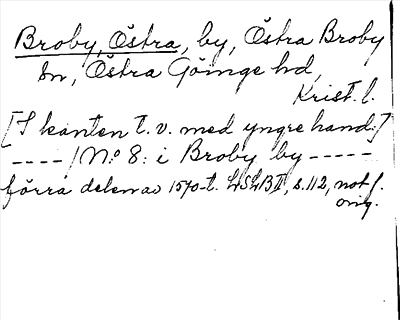 Broby, Östra, by, Östra Broby
sn, Östra Göinge hd,
Krist. l.
[I kanten t. v. med yngre hand:]
---- / No 8: i Broby by -----
förra delen av 1570-t. LSLB II, s. 112, not f.
orig.